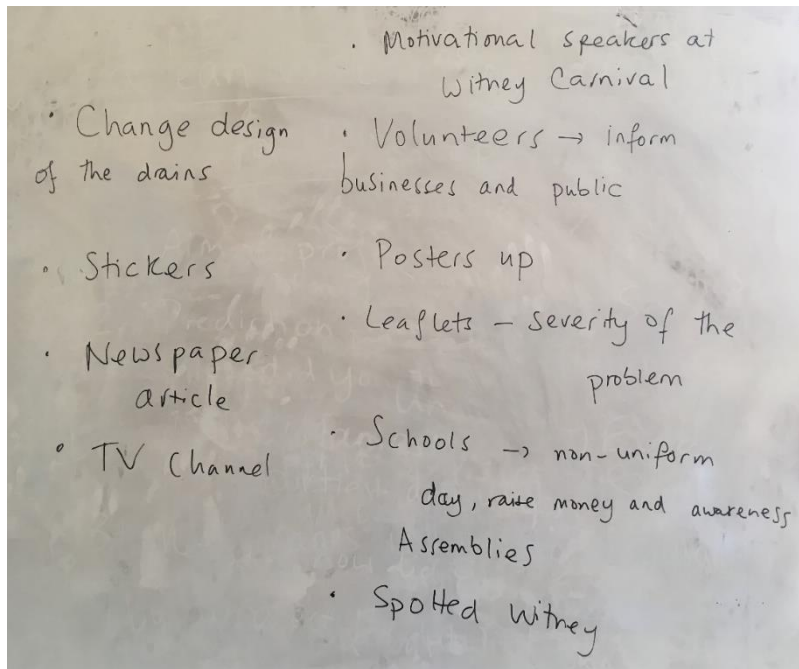 • Change design
of the drains
• Stickers
• Newspaper
article
• TV Channel
• Motivational speakers at
Witney Carnival
• Volunteers → inform
businesses and public
• Posters up
• Leaflets – severity of the
problem
• Schools → non-uniform
day, raise money and awareness
Assemblies
• Spotted Witney